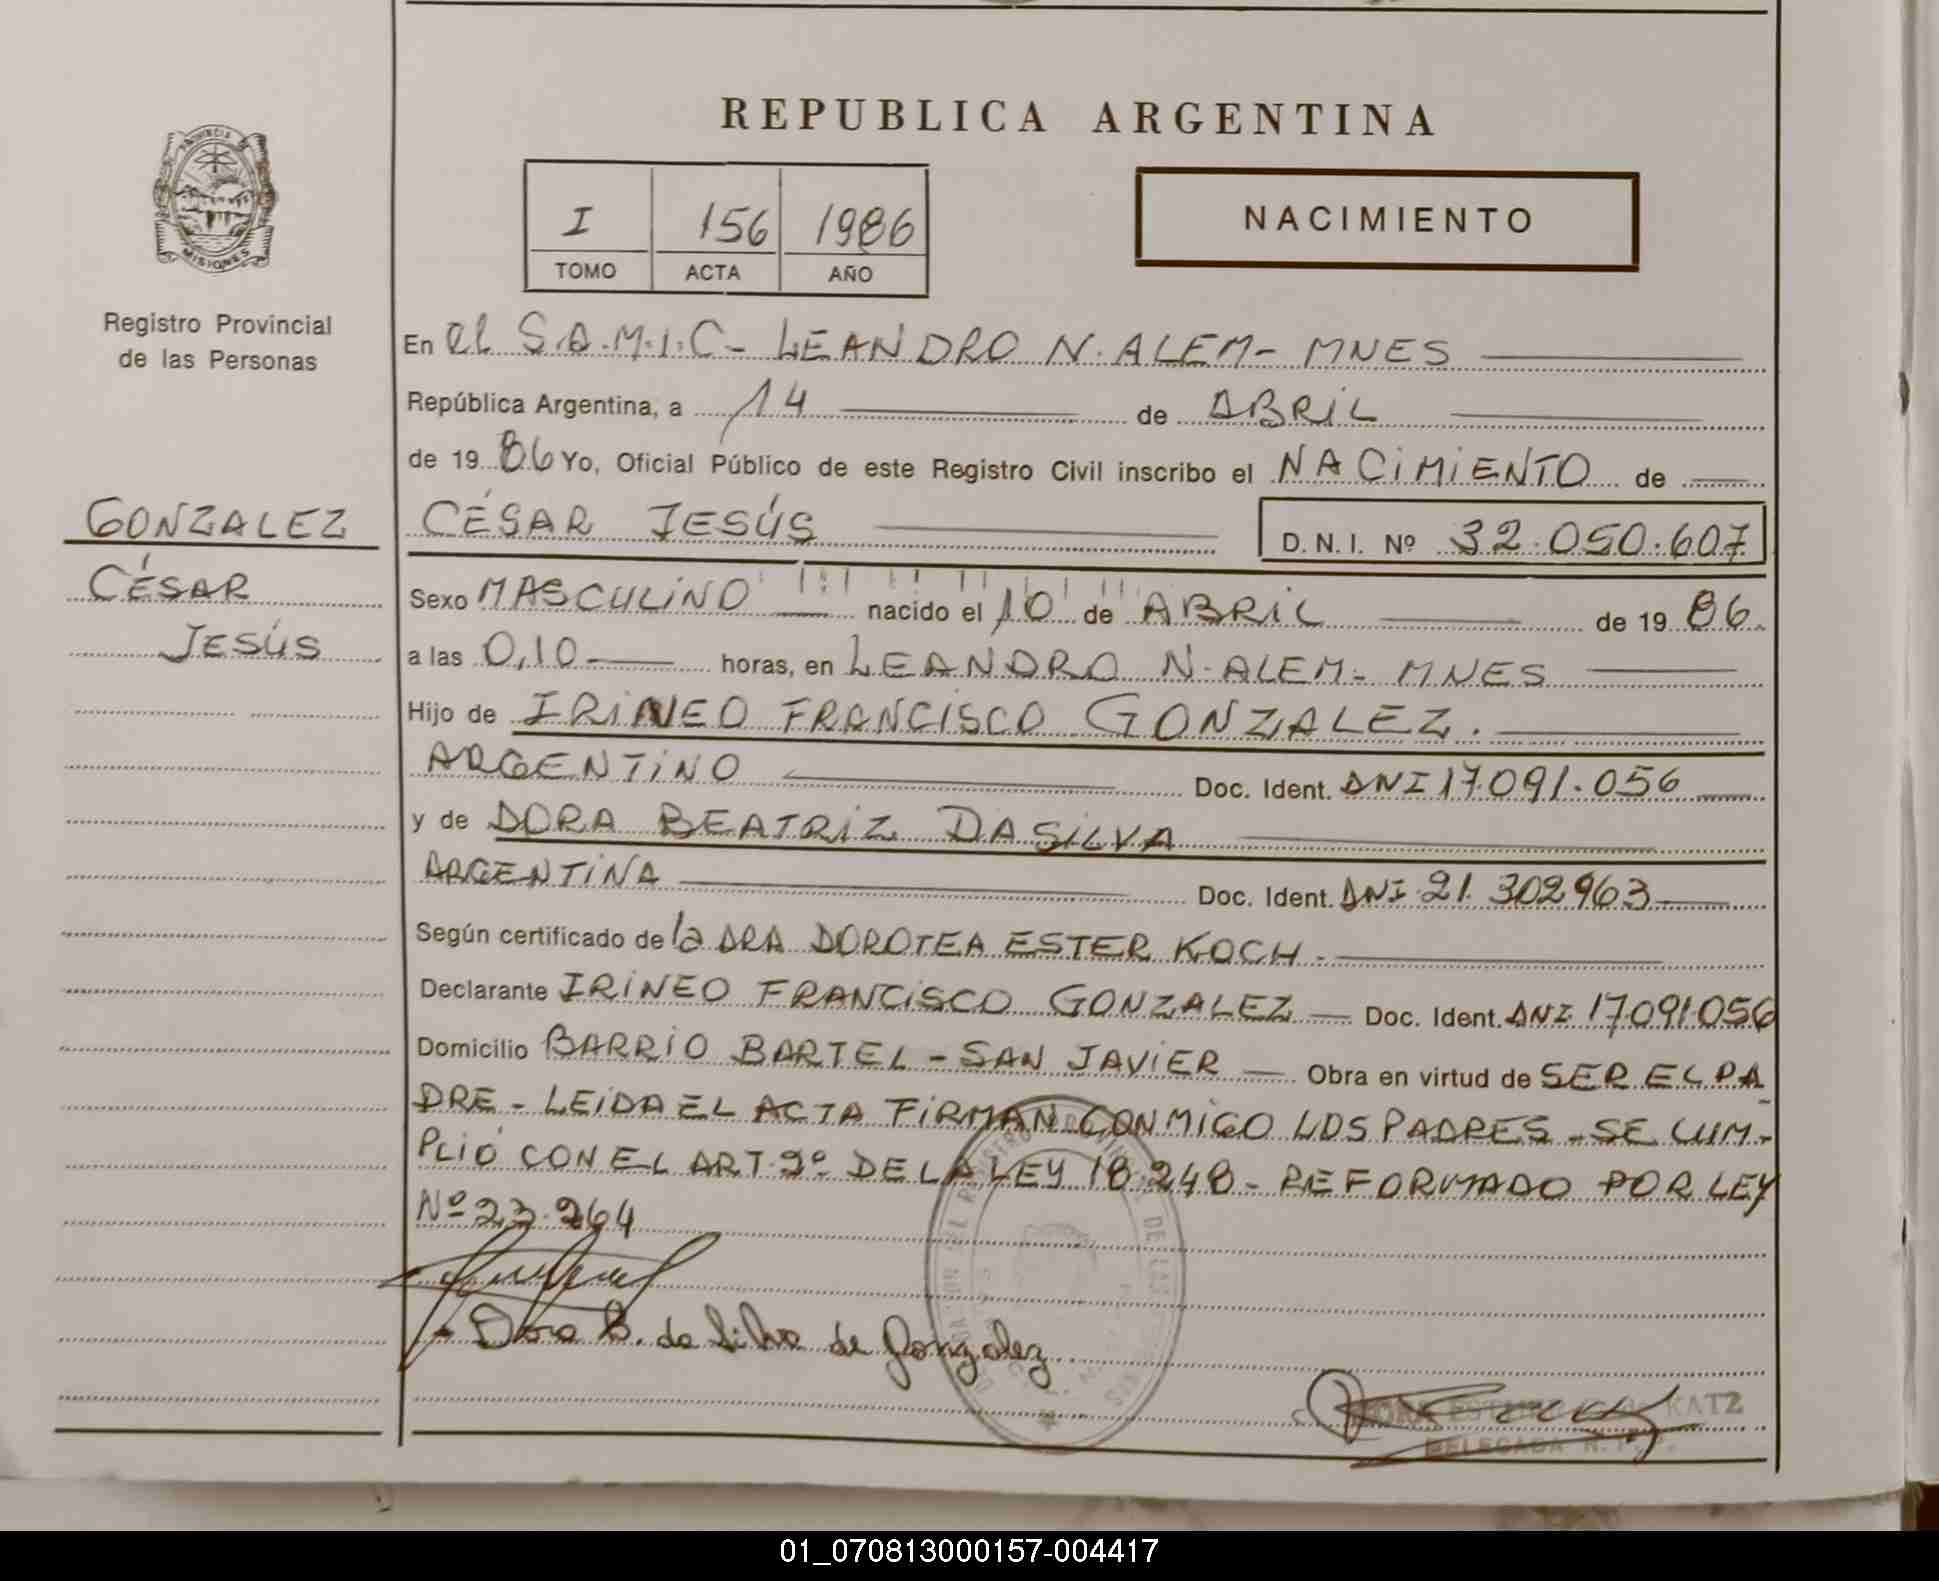 REPUBLICA ARGENTINA
PROVINCIA DE
MISIONES
I 156 1986
TOMO ACTA AÑO
NACIMIENTO
Registro Provincial
de las Personas
En el S.A.M.I.C - LEANDRO N. ALEM - MNES
República Argentina, a 14 de ABRIL
de 19 86 Yo, Oficial Público de este Registro Civil inscribo el NACIMIENTO de
GONZALEZ
CÉSAR
JESÚS
CÉSAR JESÚS D.N.I. Nº 32.050.607
Sexo MASCULINO nacido el 10 de ABRIL de 19 86.
a las 0,10 horas, en LEANDRO N. ALEM - MNES
Hijo de IRINEO FRANCISCO GONZALEZ.
ARGENTINO Doc. Ident. DNI 17.091.056
y de DORA BEATRIZ DASILVA
ARGENTINA Doc. Ident. DNI 21.302963
Según certificado de la DRA DOROTEA ESTER KOCH.
Declarante IRINEO FRANCISCO GONZALEZ - Doc. Ident. DNI 17.091.056
Domicilio BARRIO BARTEL - SAN JAVIER - Obra en virtud de SER EL PA
DRE - LEIDA EL ACTA FIRMAN CONMIGO LOS PADRES - SE CUM-
PLIÓ CON EL ART. 2º DE LA LEY 18.248 - REFORMADO POR LEY
Nº 23.264
Dora B. da Silva de Gonzalez
KATZ
DELEGADA
01_070813000157-004417